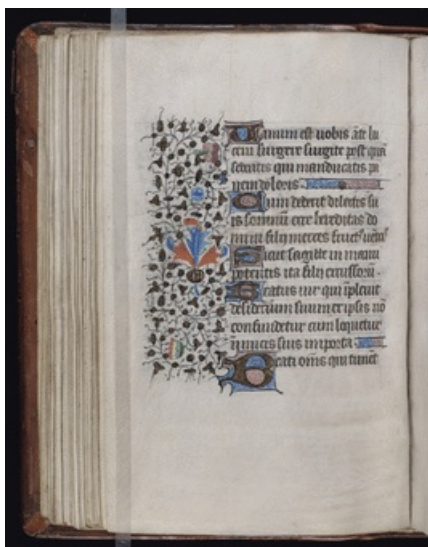 Vanum est uobis ãte lu
cem surgere surgite post quã
sederitis qui manducatis pa
nem doloris
Cum dederit dilectis su
is somnũ ecce hereditas do
mini filij merces fructꝰ uẽtꝰ
Sicut sagitte in manu
potentis ita filij excussorũ
Beatus uir qui ĩpleuit
desiderium suum ex ipsis nõ
confundetur cum loquetur
inimicis suis in porta
Beati oẽs qui timẽt